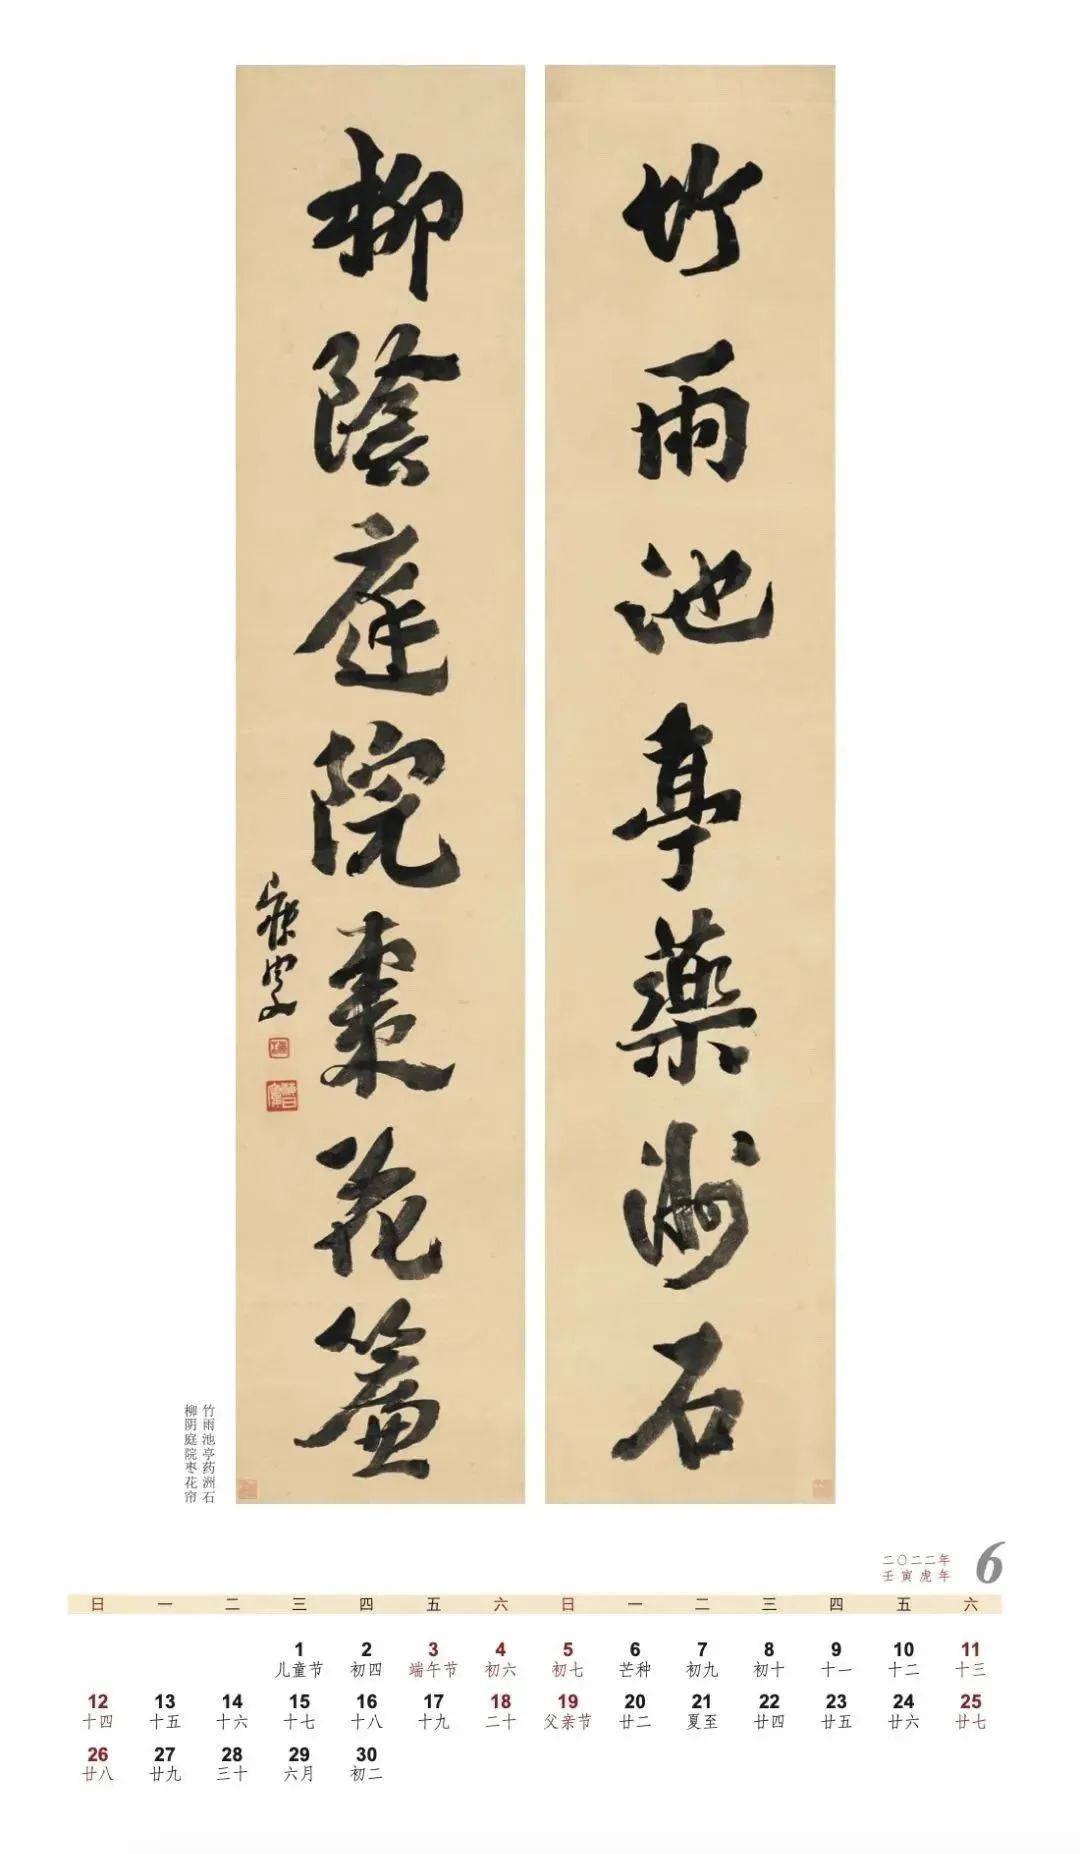 竹雨池亭藥洲石
柳陰庭院棗花簾
竹雨池亭药洲石
柳阴庭院枣花帘
二〇二二年
壬寅虎年
6
日 一 二 三 四 五 六 日 一 二 三 四 五 六
1 2 3 4 5 6 7 8 9 10 11
儿童节 初四 端午节 初六 初七 芒种 初九 初十 十一 十二 十三
12 13 14 15 16 17 18 19 20 21 22 23 24 25
十四 十五 十六 十七 十八 十九 二十 父亲节 廿二 夏至 廿四 廿五 廿六 廿七
26 27 28 29 30
廿八 廿九 三十 六月 初二